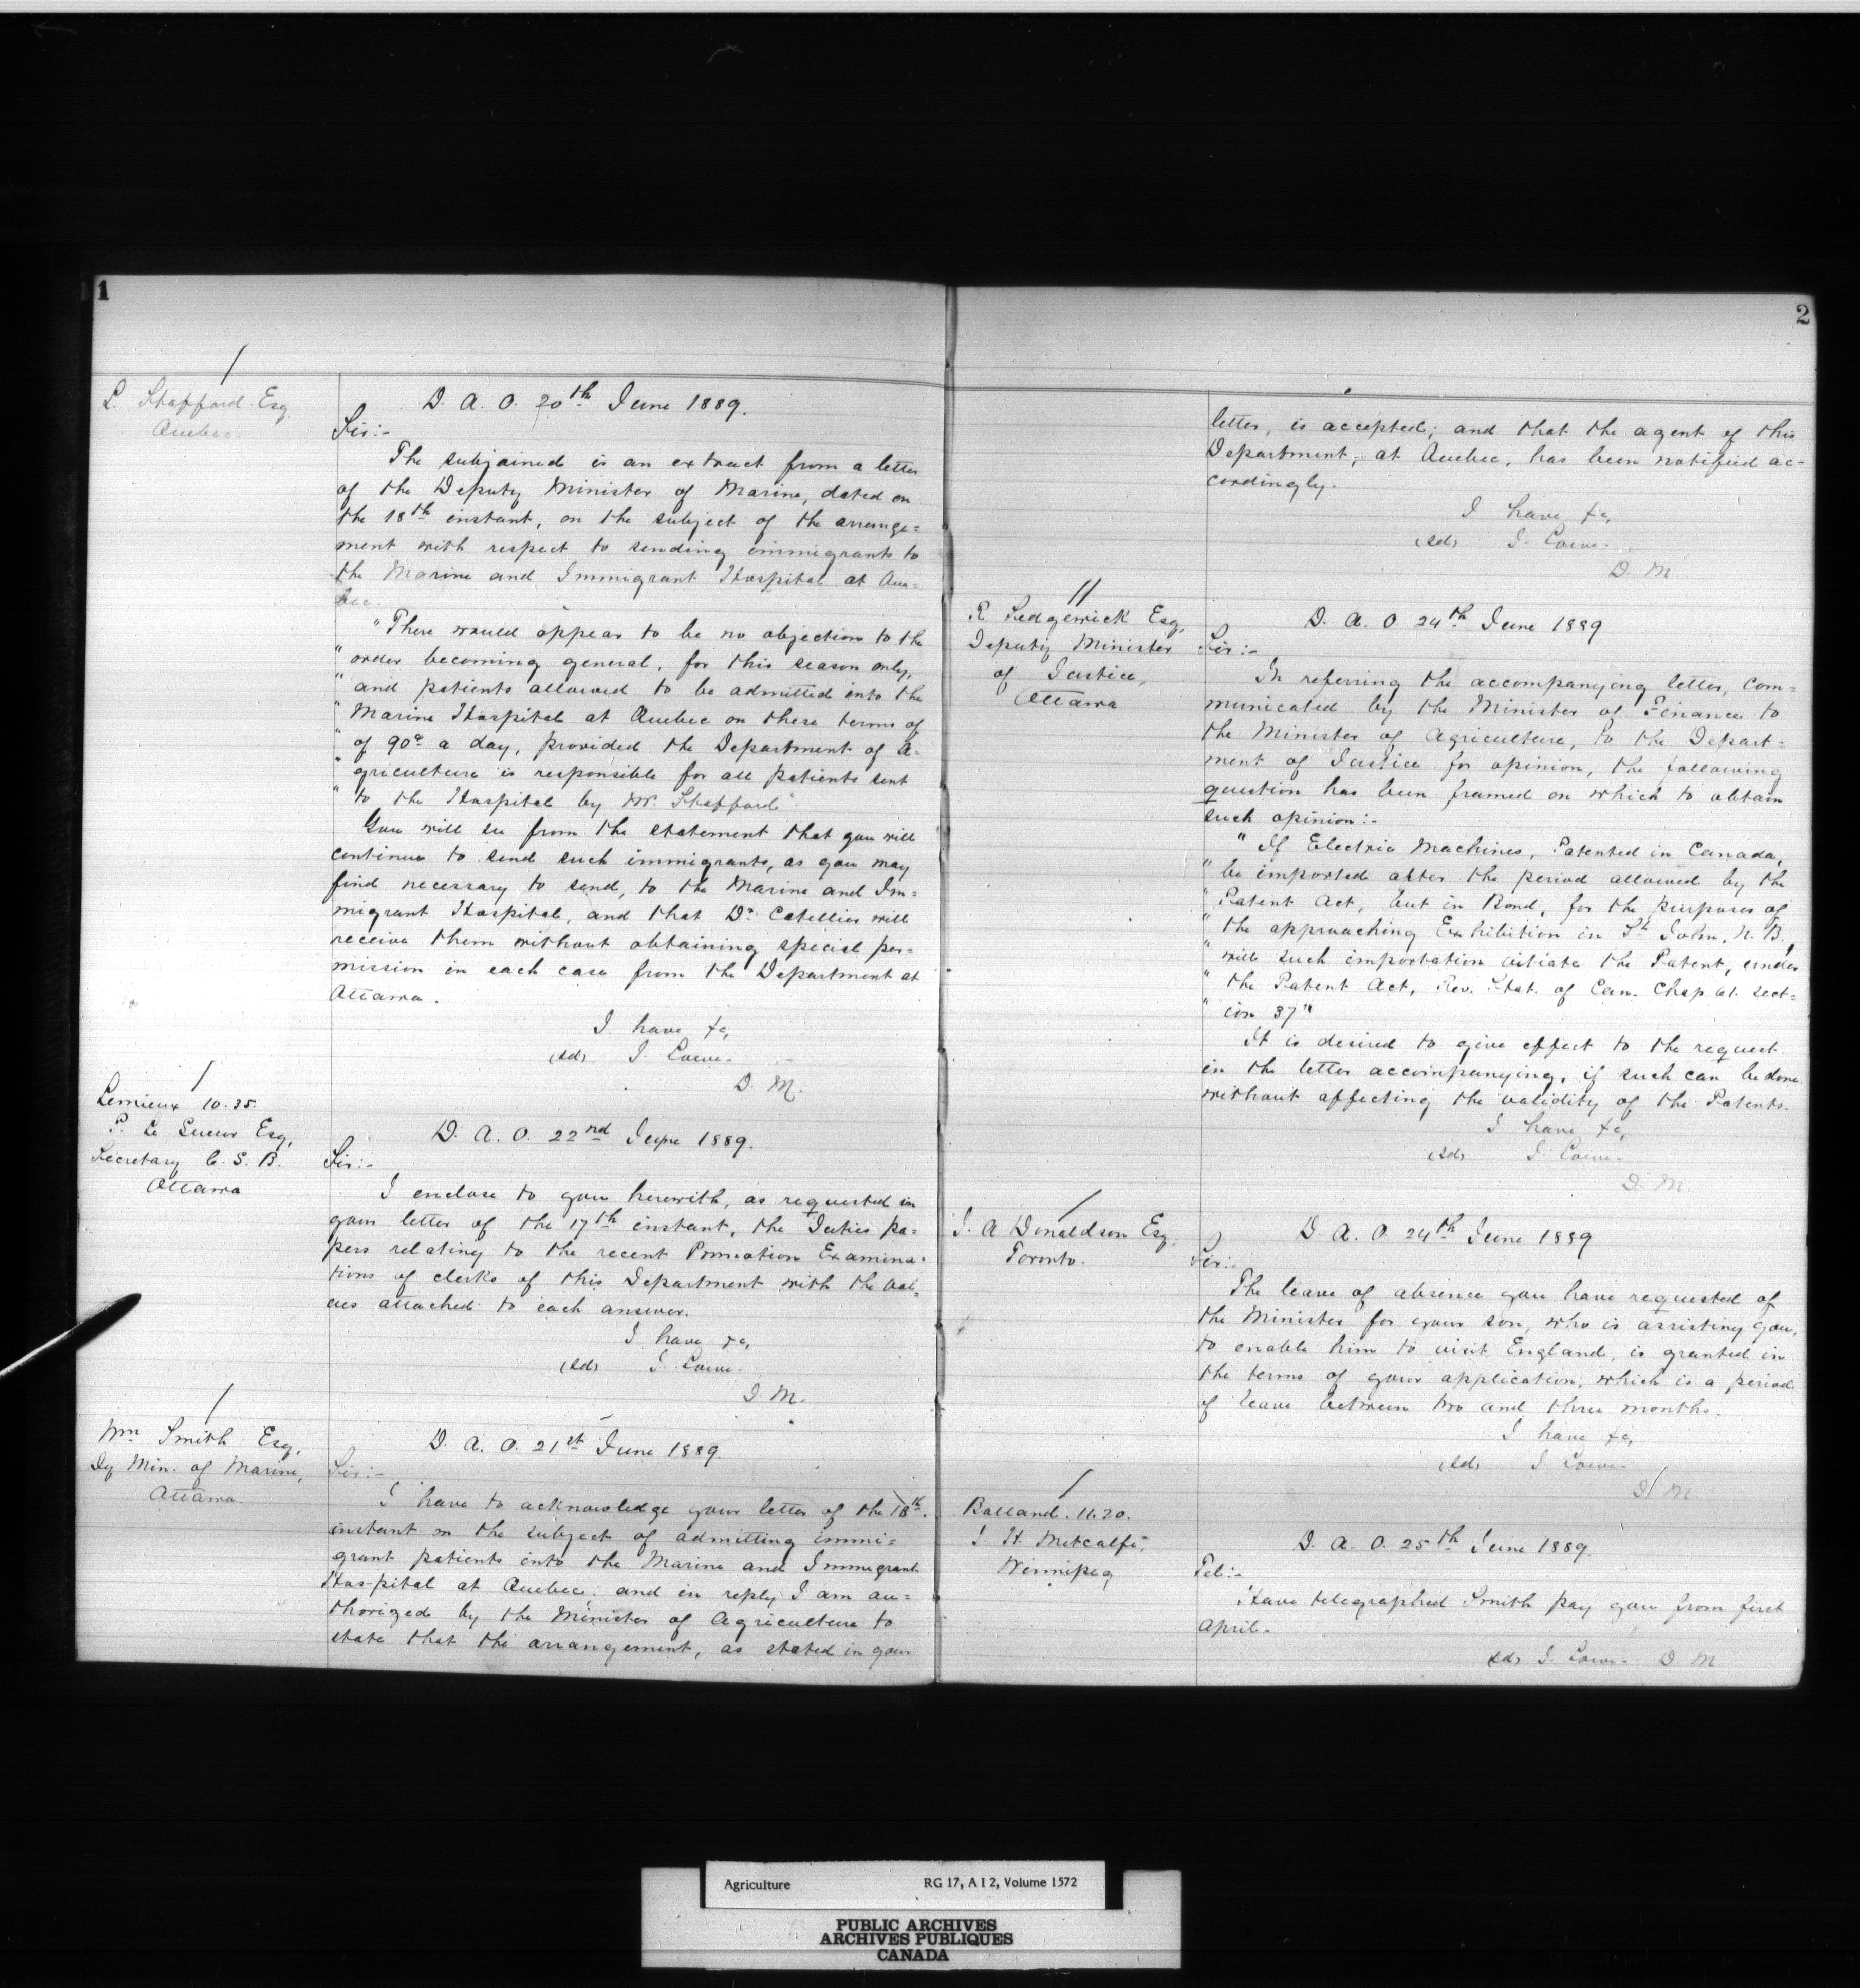 1
L. Stafford Esq
Quebec.
D. A. O. 20th June 1889.
Sir:-
The subjoined is an extract from a letter
of the Deputy Minister of Marine, dated on
the 18th instant, on the subject of the arrange=
ment with respect to sending immigrants to
the Marine and Immigrant Hospital at Que=
bec.
"There would appear to be no objection to the
"order becoming general, for this season only,
"and patients allowed to be admitted into the
"Marine Hospital at Quebec on these terms of
"of 90c a day, provided the Department of A=
"griculture is responsible for all patients sent
"to the Hospital by Mr. Stafford".
You will see from the statement that you will
continue to send such immigrants, as you may
find necessary to send, to the Marine and Im=
migrant Hospital, and that Dr Catellier will
receive them without obtaining special per=
mission in each case from the Department at
Ottawa.
I have &c,
(sd) J. Lowe.
D. M.
Lemieux 10.35.
P. Le Sueur Esq,
Secretary C. S. B.
Ottawa
D. A. O. 22nd June 1889.
Sir:-
I enclose to you herewith, as requested in
your letter of the 17th instant, the Duties pa=
pers relating to the recent Promotion Examina=
tions of clerks of this Department with the val=
ues attached to each answer.
I have &c,
(sd) J. Lowe.
D. M.
Wm Smith Esq,
Dy Min. of Marine,
Ottawa.
D. A. O. 21st June 1889.
Sir:-
I have to acknowledge your letter of the 18th.
instant on the subject of admitting immi=
grant patients into the Marine and Immigrant
Hos-pital at Quebec; and in reply I am au=
thorized by the Minister of Agriculture to
state that the arrangement, as stated in your
2
letter, is accepted; and that the agent of this
Department, at Quebec, has been notified ac=
cordingly.
I have &c,
(sd) J. Lowe.
D. M.
R. Sedgewick Esq,
Deputy Minister
of Justice,
Ottawa
D. A. O 24th June 1889
Sir:-
In referring the accompanying letter, com=
municated by the Minister of Finance to
the Minister of Agriculture, to the Depart=
ment of Justice for opinion, the following
question has been framed on which to obtain
such opinion:-
"If Electric Machines, Patented in Canada,
"be imported after the period allowed by the
"Patent Act, but in Bond, for the purposes of
"the approaching Exhibition in St John, N. B,
"will such importation vitiate the Patent, under
"the Patent Act, Rev. Stat. of Can. Chap 61. Sect=
"ion 37"
It is desired to give effect to the request
in the letter accompanying, if such can be done
without affecting the validity of the Patents.
I have &c,
(sd) J. Lowe.
D. M.
J. A Donaldson Esq,
Toronto.
D A. O. 24th June 1889
Sir:-
The leave of absence you have requested of
the Minister for your son, who is assisting you,
to enable him to visit England, is granted in
the terms of your application, which is a period
of leave between two and three months.
I have &c,
(sd) J Lowe.
D/ M.
Balland. 11.20.
J. H. Metcalfe,
Winnipeg
D. A. O. 25th June 1889.
Tel:-
Have telegraphed Smith pay you from first
April.
sd, J. Lowe. D. M
Agriculture RG 17, A I 2, Volume 1572
PUBLIC ARCHIVES
ARCHIVES PUBLIQUES
CANADA